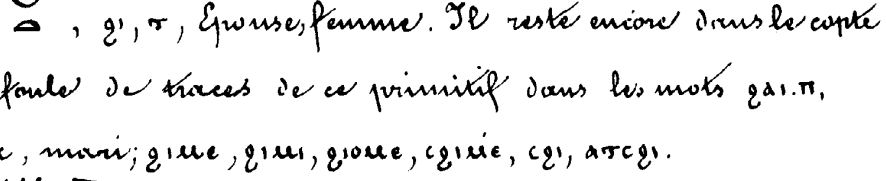 , ϩι, т, Épouse, femme. Il reste encore dans le copte
foule de traces de ce primitif dans les mots ϩⲁⲓ.ⲡ,
, mari; ϩⲓⲙⲉ, ϩⲓⲙⲓ, ϩⲓⲟⲙⲉ, ⲥϩⲓⲙⲉ, ⲥϩⲓ, ⲁⲧⲥϩⲓ.